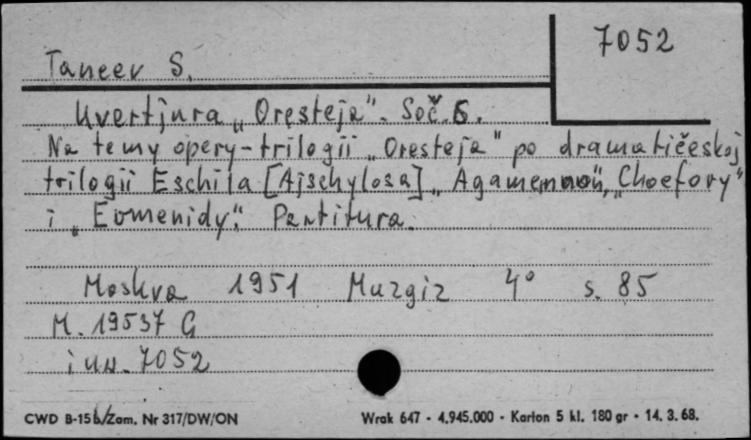 7052
Taneev S.
Uvertjura „Oresteja". Soč. 6.
Na temy opery-trilogii „Oresteja" po dramatičeskoj
trilogii Eschila [Ajschylosa] „Agamemnon", „Choefory"
i „Evmenidy". Partitura.
Moskva 1951 Muzgiz 4° s. 85
M. 19537 G
inw. 7052
CWD B-15b/Zam. Nr 317/DW/ON Wrak 647 - 4.945.000 - Karton 5 kl. 180 gr - 14. 3. 68.